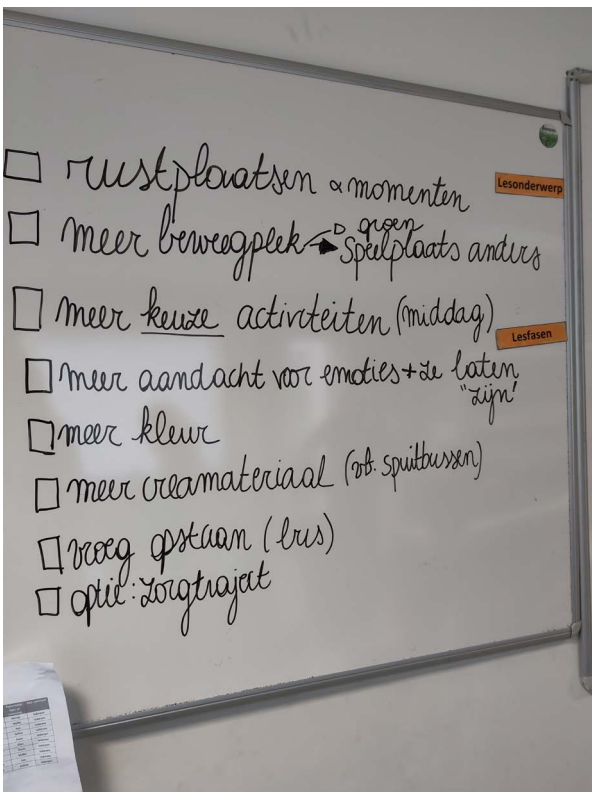 □ rustplaatsen & momenten
Lesonderwerp
□ meer beweegplek → groen
→ Speelplaats anders
□ meer keuze activiteiten (middag)
Lesfasen
□ meer aandacht voor emoties + ze laten
"zijn"
□ meer kleur
□ meer creamateriaal (vb. spuitbussen)
□ vroeg opstaan (bus)
□ optie: zorgtraject